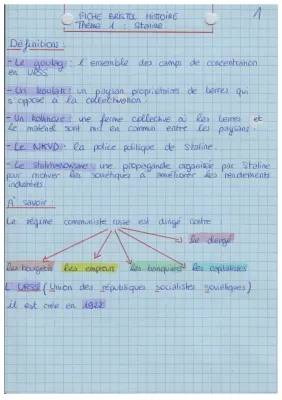 FICHE BRISTOL HISTOIRE
1
THÈME 1 : Staline
Définitions :
- Le goulag : l'ensemble des camps de concentration
en URSS
- Un koulak : un paysan propriétaires de terres qui
s'oppose à la collectivation.
- Un kolkhoze : une ferme collective où les terres et
le matériel sont mit en commun entre les paysans.
- Le NKVD : la police politique de Staline.
- Le stakhanovisme : une propagande organisée par Staline
pour motiver les soviétiques à améliorer les rendements
industriels.
A savoir :
Le régime communiste russe est dirigé contre :
le clergé
les bourgeois les empereurs les banquiers les capitalistes
L'URSS (Union des républiques socialistes soviétiques)
il est crée en 1922